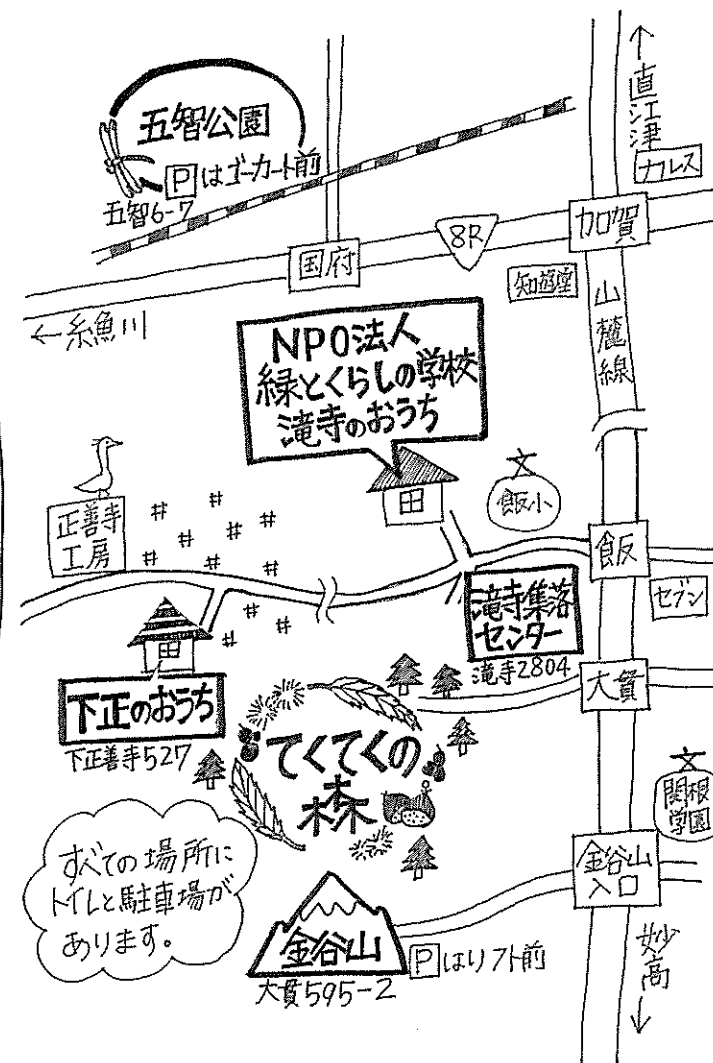 ↑
直江津
五智公園
Pはゴーカート前
五智6-7
カルス
加賀
8R
国府
知遊堂
←糸魚川
山麓線
NPO法人
緑とくらしの学校
滝寺のおうち
文
飯小
正善寺
工房
飯
セブン
滝寺集落
センター
滝寺2804
大貫
下正のおうち
下正善寺527
てくてくの
森
文
関根
学園
すべての場所に
トイレと駐車場が
あります。
金谷山
入口
金谷山
Pはリフト前
大貫595-2
妙高
↓